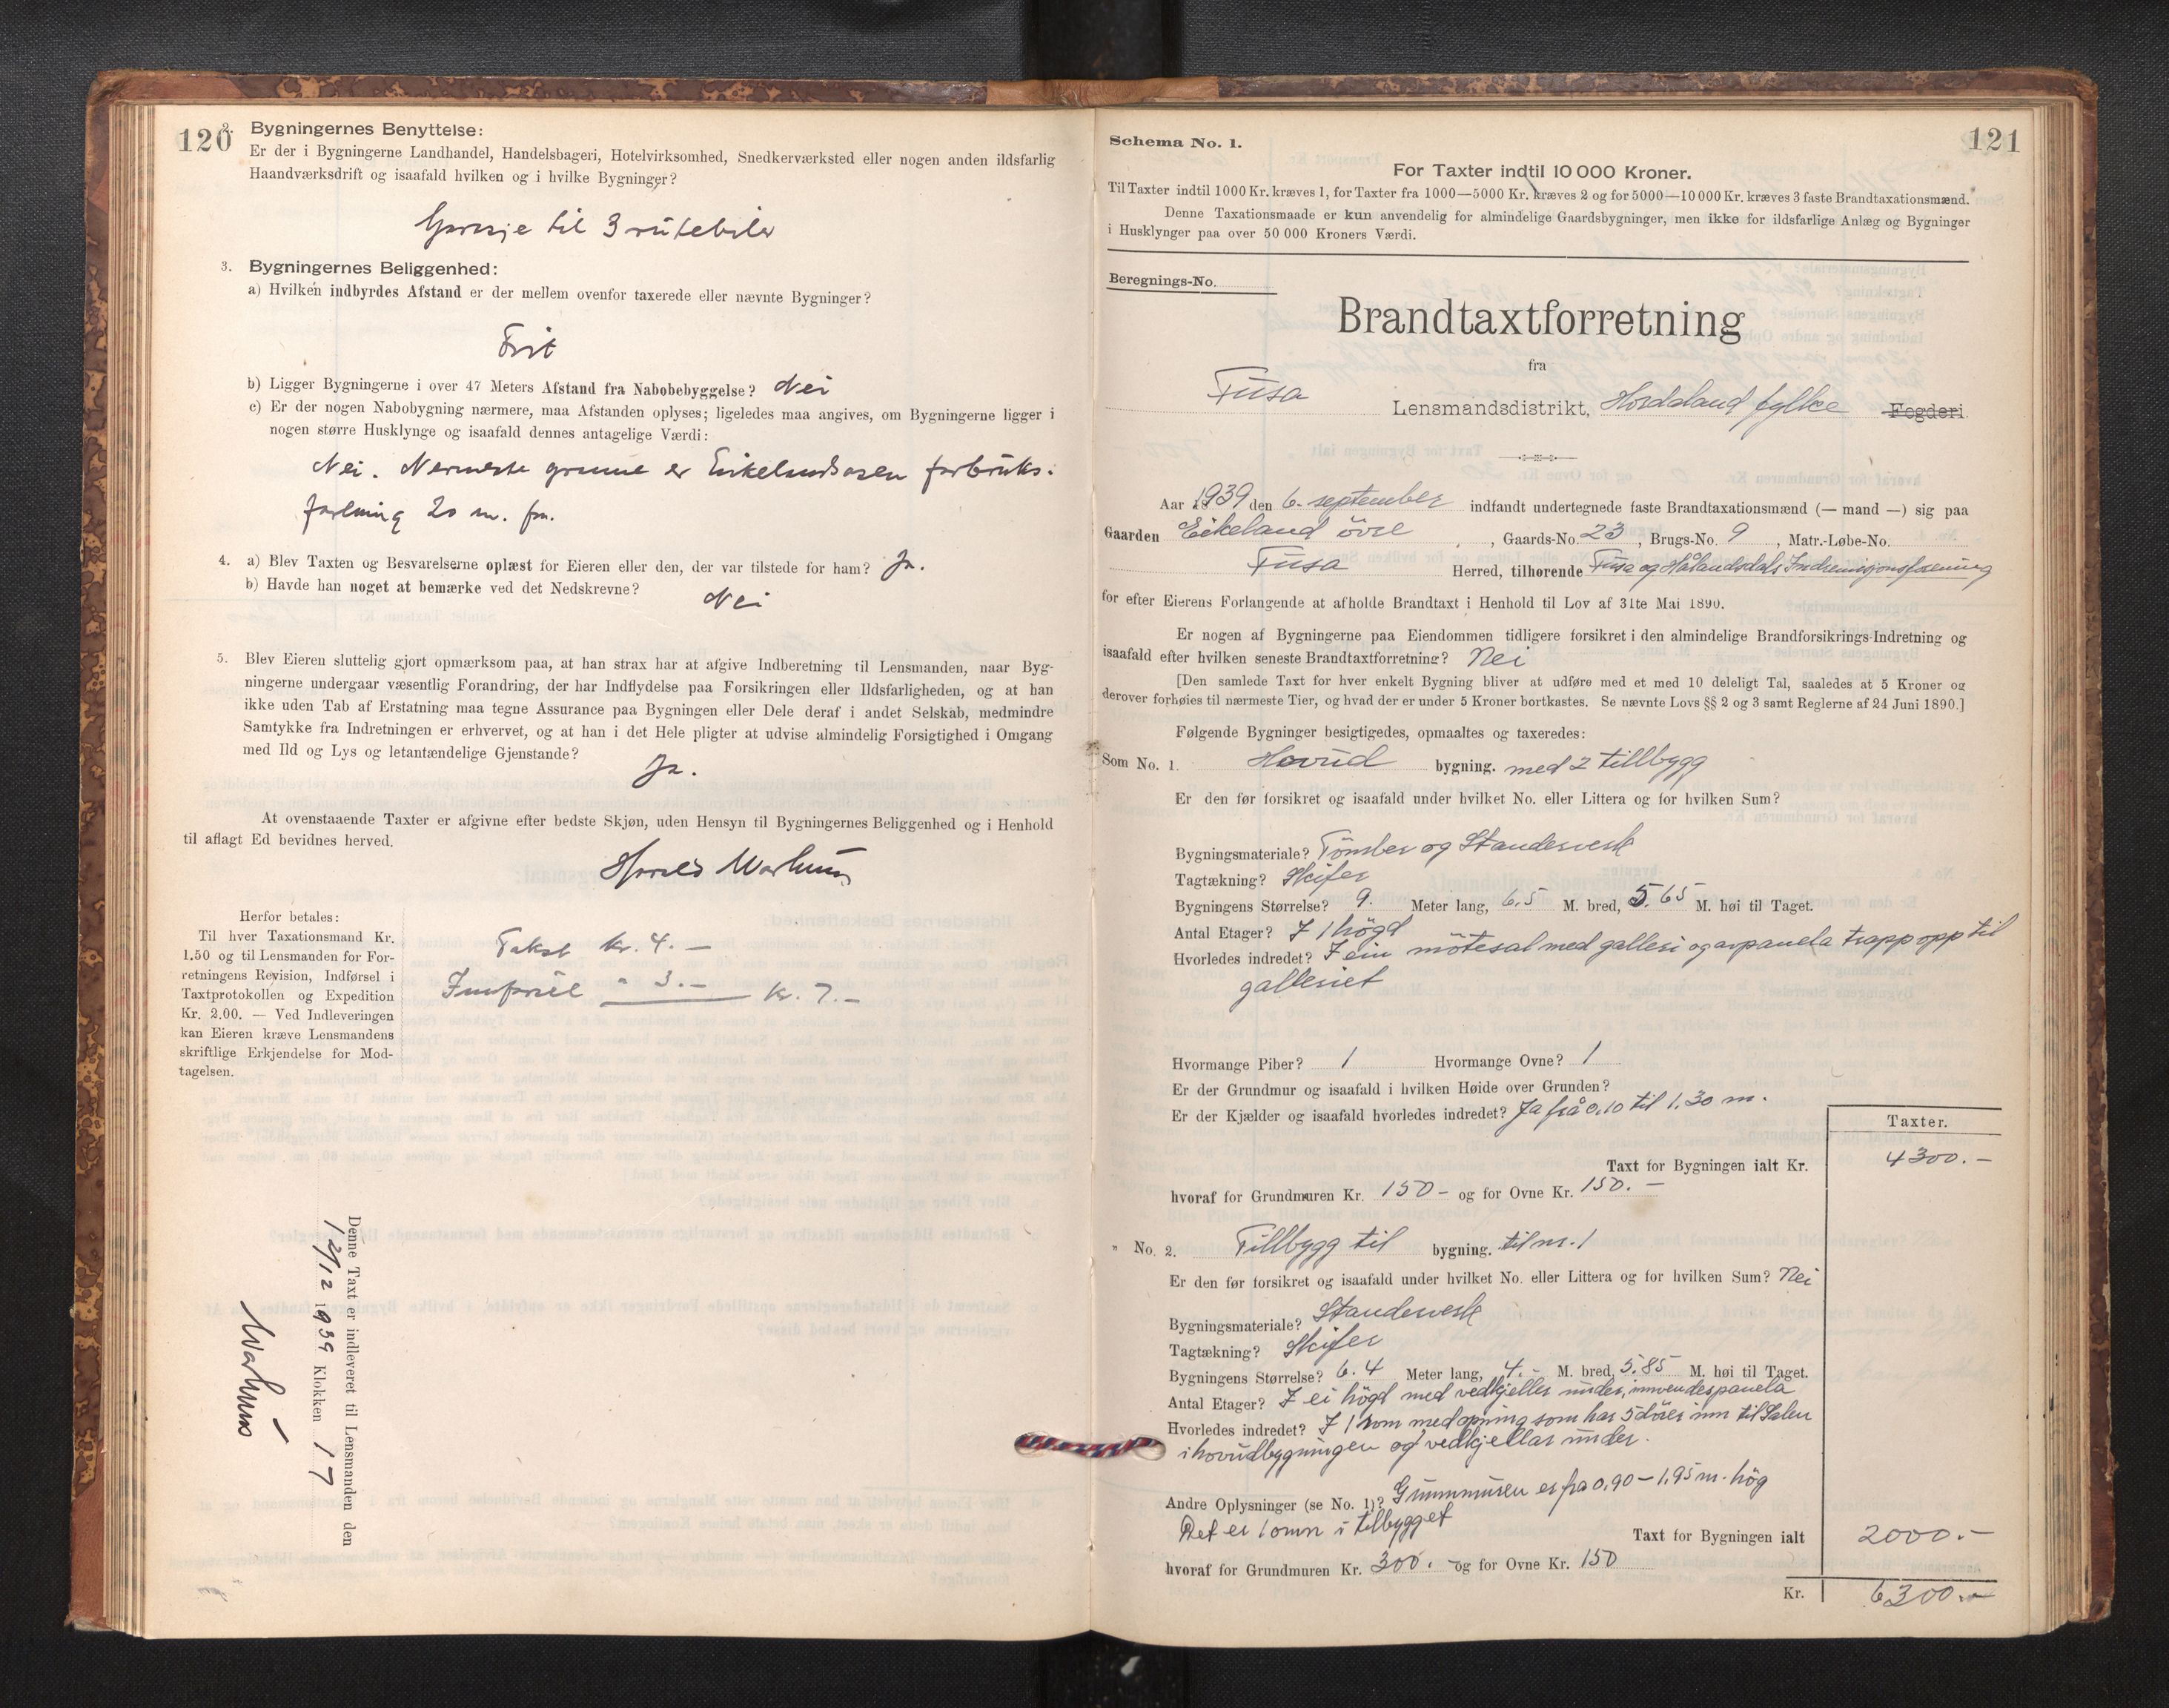 120
2. Bygningernes Benyttelse:
Er der i Bygningerne Landhandel, Handelsbageri, Hotelvirksomhed, Snedkerværksted eller nogen anden ildsfarlig
Haandværksdrift og isaafald hvilken og i hvilke Bygninger?
Garasje til 3 rutebiler
3. Bygningernes Beliggenhed:
a) Hvilken indbyrdes Afstand er der mellem ovenfor taxerede eller nævnte Bygninger?
Frit
b) Ligger Bygningerne i over 47 Meters Afstand fra Nabobebyggelse? Nei
c) Er der nogen Nabobygning nærmere, maa Afstanden oplyses; ligeledes maa angives, om Bygningerne ligger i
nogen større Husklynge og isaafald dennes antagelige Værdi:
Nei. Nermeste granne er Eikelandsosen forbruks-
forening 20 m. fra.
4. a) Blev Taxten og Besvarelserne oplæst for Eieren eller den, der var tilstede for ham? Ja.
b) Havde han noget at bemærke ved det Nedskrevne? Nei
5. Blev Eieren sluttelig gjort opmærksom paa, at han strax har at afgive Indberetning til Lensmanden, naar Byg-
ningerne undergaar væsentlig Forandring, der har Indflydelse paa Forsikringen eller Ildsfarligheden, og at han
ikke uden Tab af Erstatning maa tegne Assurance paa Bygningen eller Dele deraf i andet Selskab, medmindre
Samtykke fra Indretningen er erhvervet, og at han i det Hele pligter at udvise almindelig Forsigtighed i Omgang
med Ild og Lys og letantændelige Gjenstande?
Ja.
At ovenstaaende Taxter er afgivne efter bedste Skjøn, uden Hensyn til Bygningernes Beliggenhed og i Henhold
til aflagt Ed bevidnes herved.
Herfor betales:
Til hver Taxationsmand Kr.
1.50 og til Lensmanden for For-
retningens Revision, Indførsel i
Taxtprotokollen og Expedition
Kr. 2.00. — Ved Indleveringen
kan Eieren kræve Lensmandens
skriftlige Erkjendelse for Mod-
tagelsen.
Takst kr. 4. —
Innførsel " 3.— kr. 7.—
Denne Taxt er indleveret til Lensmanden den
12/12 1939 Klokken 17
121
Schema No. 1.
For Taxter indtil 10 000 Kroner.
Til Taxter indtil 1000 Kr. kræves 1, for Taxter fra 1000—5000 Kr. kræves 2 og for 5000—10 000 Kr. kræves 3 faste Brandtaxationsmænd.
Denne Taxationsmaade er kun anvendelig for almindelige Gaardsbygninger, men ikke for ildsfarlige Anlæg og Bygninger
i Husklynger paa over 50 000 Kroners Værdi.
Beregnings-No.
Brandtaxtforretning
fra
Fusa Lensmandsdistrikt, Hordaland fylke Fogderi
Aar 1939 den 6. september indfandt undertegnede faste Brandtaxationsmænd (— mand —) sig paa
Gaarden Eikeland övre, Gaards-No. 23, Brugs-No. 9, Matr.-Løbe-No.
Fusa Herred, tilhørende Fusa og Hålandsdals Indremisjonsforening
for efter Eierens Forlangende at afholde Brandtaxt i Henhold til Lov af 31te Mai 1890.
Er nogen af Bygningerne paa Eiendommen tidligere forsikret i den almindelige Brandforsikrings-Indretning og
isaafald efter hvilken seneste Brandtaxtforretning? Nei
[Den samlede Taxt for hver enkelt Bygning bliver at udføre med et med 10 deleligt Tal, saaledes at 5 Kroner og
derover forhøies til nærmeste Tier, og hvad der er under 5 Kroner bortkastes. Se nævnte Lovs §§ 2 og 3 samt Reglerne af 24 Juni 1890.]
Følgende Bygninger besigtigedes, opmaaltes og taxeredes:
Som No. 1. Hovud bygning. med 2 tillbygg
Er den før forsikret og isaafald under hvilket No. eller Littera og for hvilken Sum?
Bygningsmateriale? Tömber og Standerverk
Tagtækning? Skifer
Bygningens Størrelse? 9. Meter lang, 6.5 M. bred, 5.65 M. høi til Taget.
Antal Etager? I 1 högd
Hvorledes indredet? I ein mötesal med galleri og avpanela trapp opp til
galleriet
Hvormange Piber? 1 Hvormange Ovne? 1
Er der Grundmur og isaafald i hvilken Høide over Grunden?
Er der Kjælder og isaafald hvorledes indredet? Ja frå 0.10 til 1.30 m.
Taxter.
Taxt for Bygningen ialt Kr. 4300.—
hvoraf for Grundmuren Kr. 150- og for Ovne Kr. 150.—
" No. 2. Tillbygg til bygning. til nr. 1
Er den før forsikret og isaafald under hvilket No. eller Littera og for hvilken Sum? Nei
Bygningsmateriale? Standerverk
Tagtækning? Skifer
Bygningens Størrelse? 6.4 Meter lang, 4.- M. bred, 5.85 M. høi til Taget.
Antal Etager? I ei högd med vedkjeller under, innvendes panela
Hvorledes indredet? I 1 rom med opning som har 5 dörer inn til Salen
i hovudbygningen og vedkjellar under.
Andre Oplysninger (se No. 1)? Grunnmuren er fra 0,90 — 1,95 m. hög
Det er 1 omn i tilbygget
Taxt for Bygningen ialt 2000.—
hvoraf for Grundmuren Kr. 300.- og for Ovne Kr. 150
Kr. 6300.—